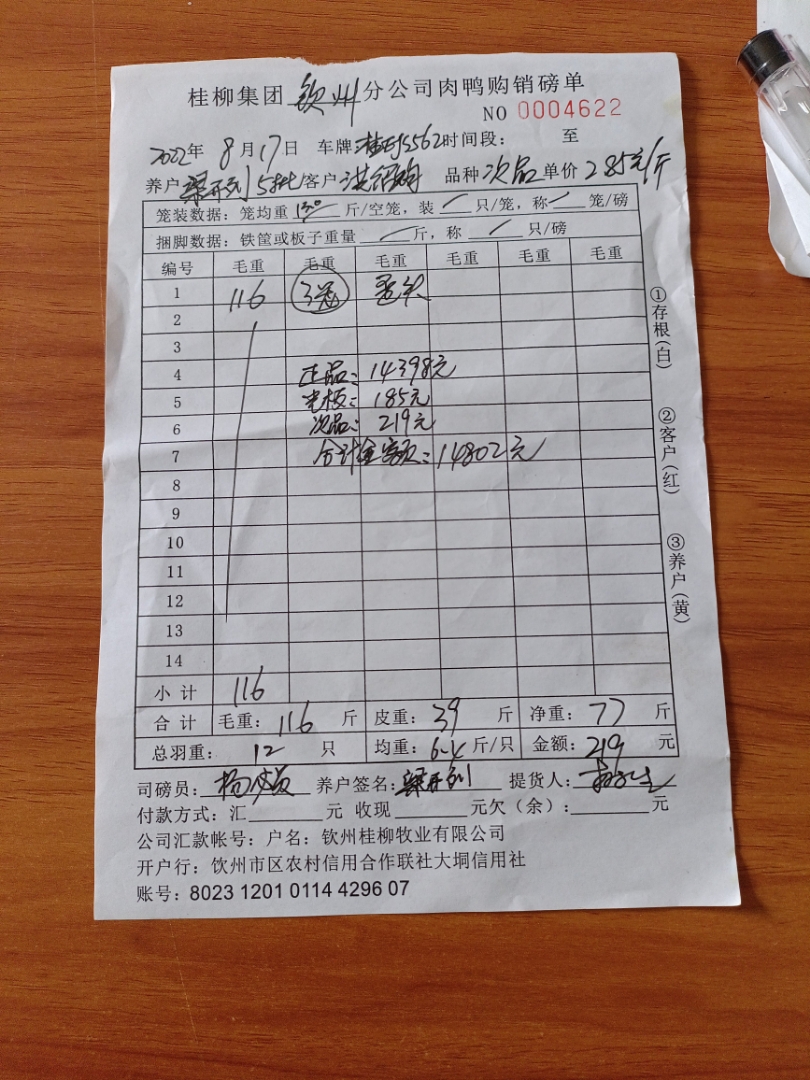 桂柳集团 钦州 分公司肉鸭购销磅单
NO 0004622
2022年 8月17日 车牌 5562 时间段： 至
养户 梁开列 5批 客户 品种 次品 单价 2.85元/斤
笼装数据：笼均重 13.0 斤/空笼，装 / 只/笼，称 / 笼/磅
捆脚数据：铁筐或板子重量 / 斤，称 / 只/磅
编号 毛重 毛重 毛重 毛重 毛重 毛重
1 116 3笼
2
3
4 正品：14398元
5 光板：185元
6 次品：219元
7 合计金额：14802元
8
9
10
11
12
13
14
小计 116
合计 毛重：116 斤 皮重：39 斤 净重：77 斤
总羽重：12 只 均重：6.4 斤/只 金额：219 元
司磅员： 养户签名：梁开列 提货人：
付款方式：汇 元 收现 元欠（余）： 元
公司汇款帐号：户名：钦州桂柳牧业有限公司
开户行：钦州市区农村信用合作联社大垌信用社
账号：8023 1201 0114 4296 07
①存根（白）
②客户（红）
③养户（黄）